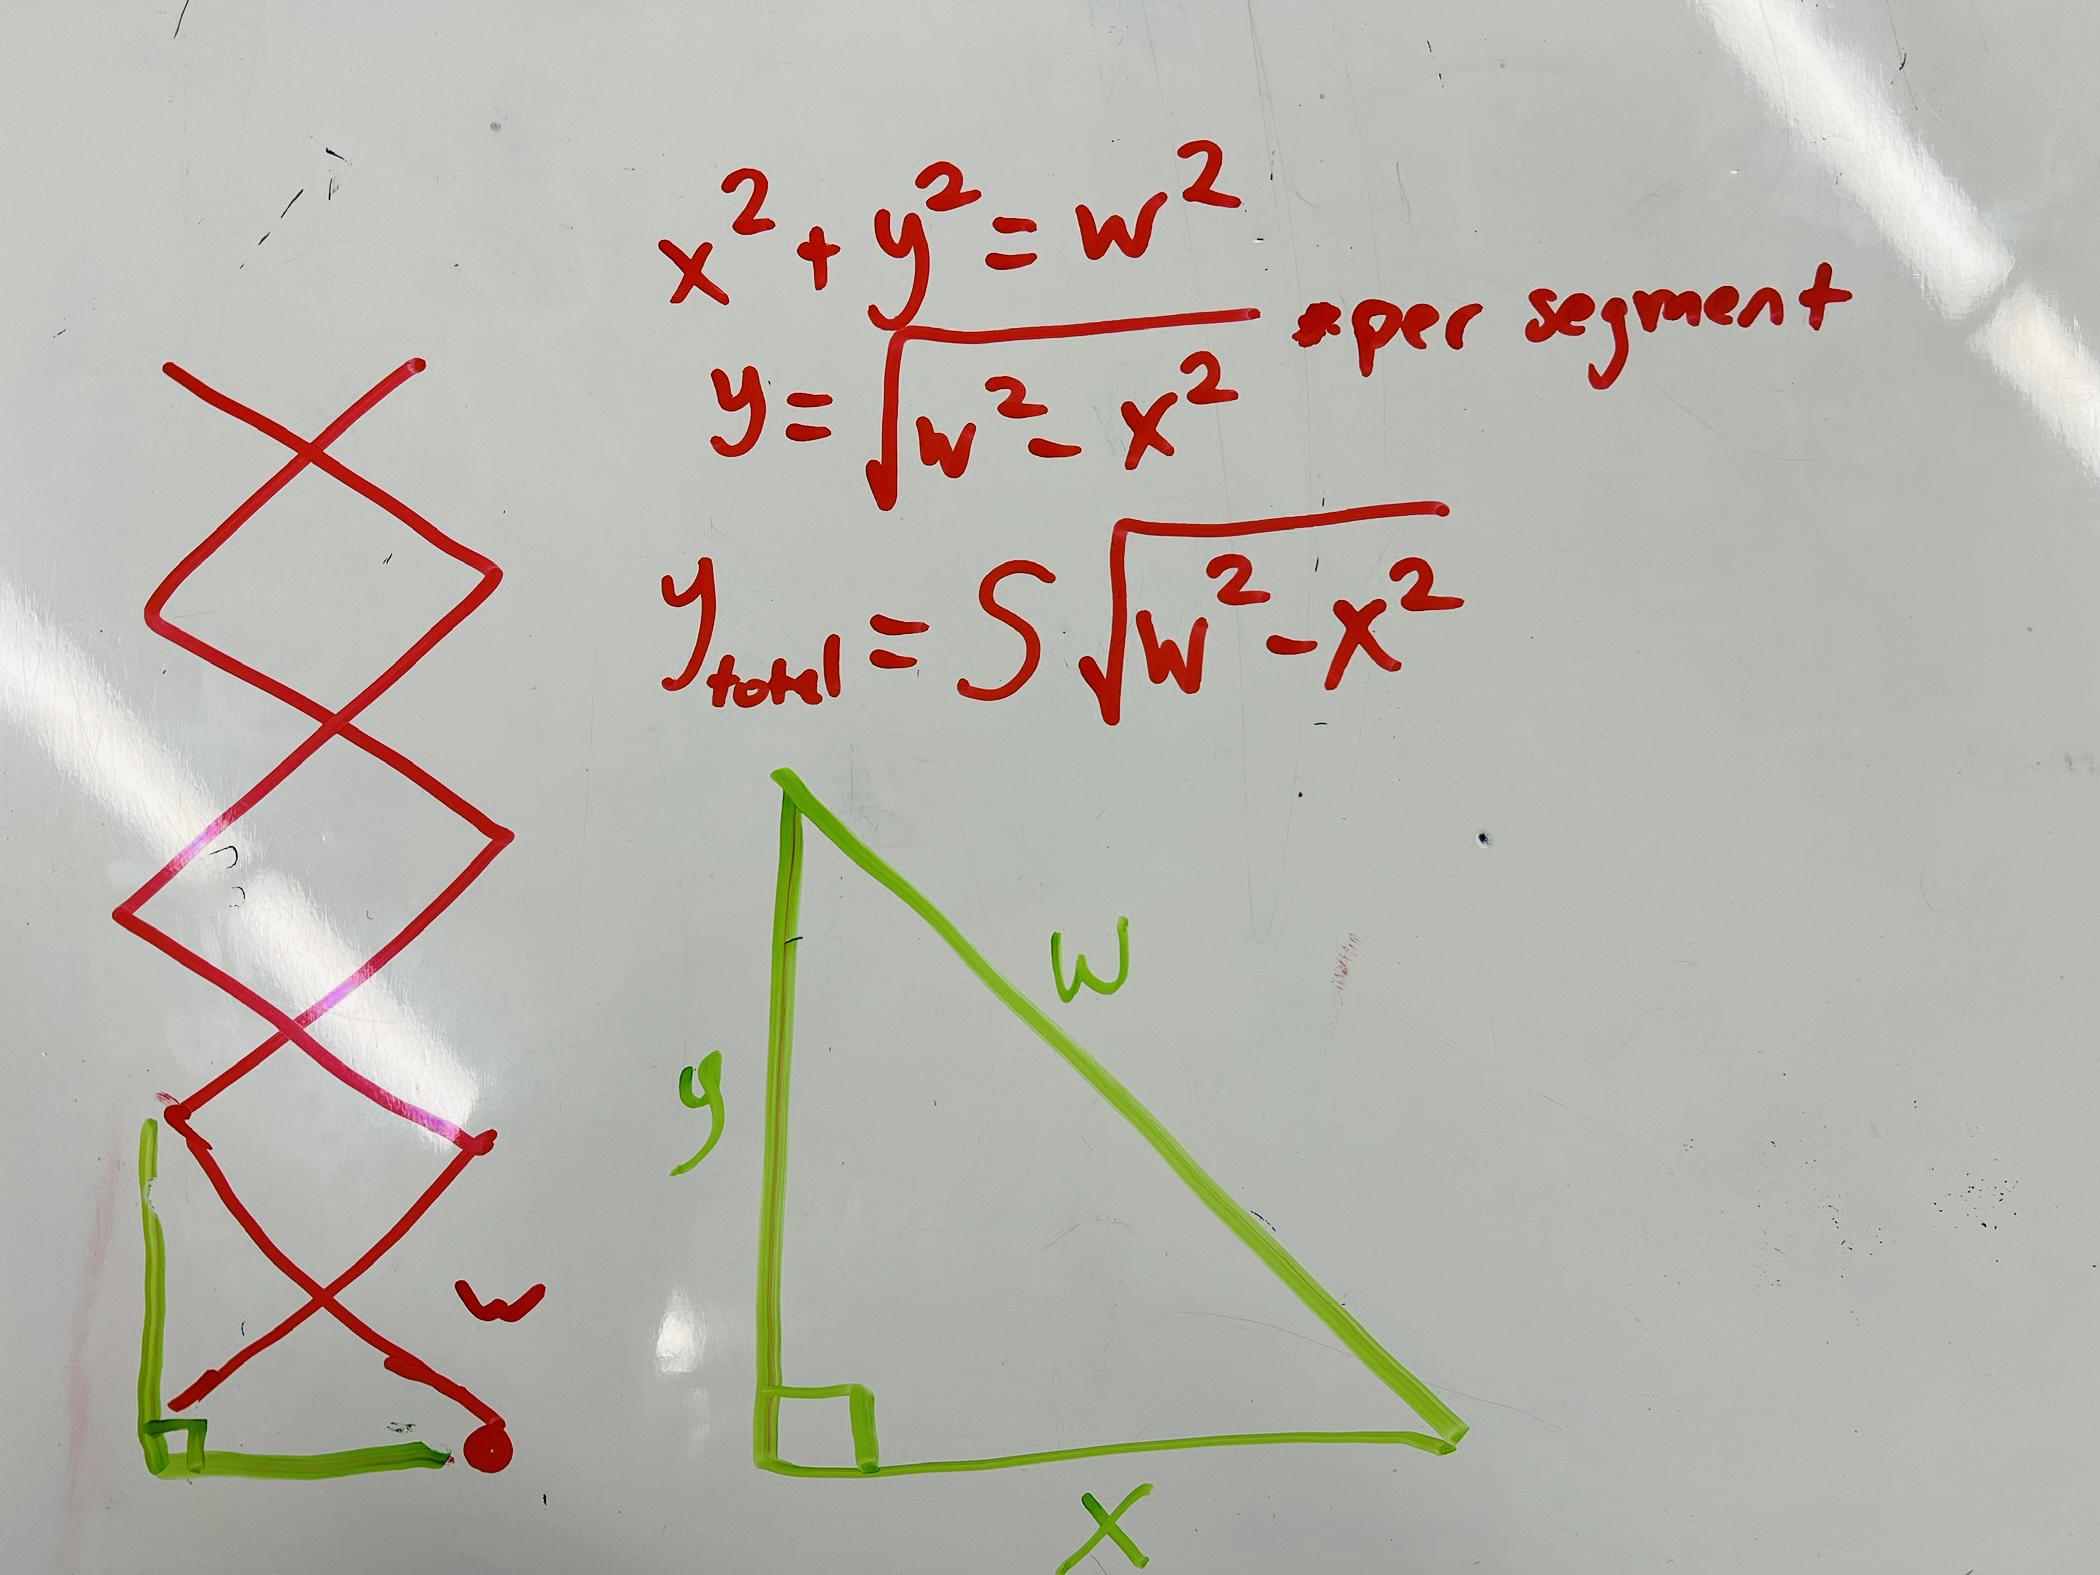 x² + y² = w²
y = √(w² - x²) *per segment
y_total = S√(w² - x²)
w
y
w
x